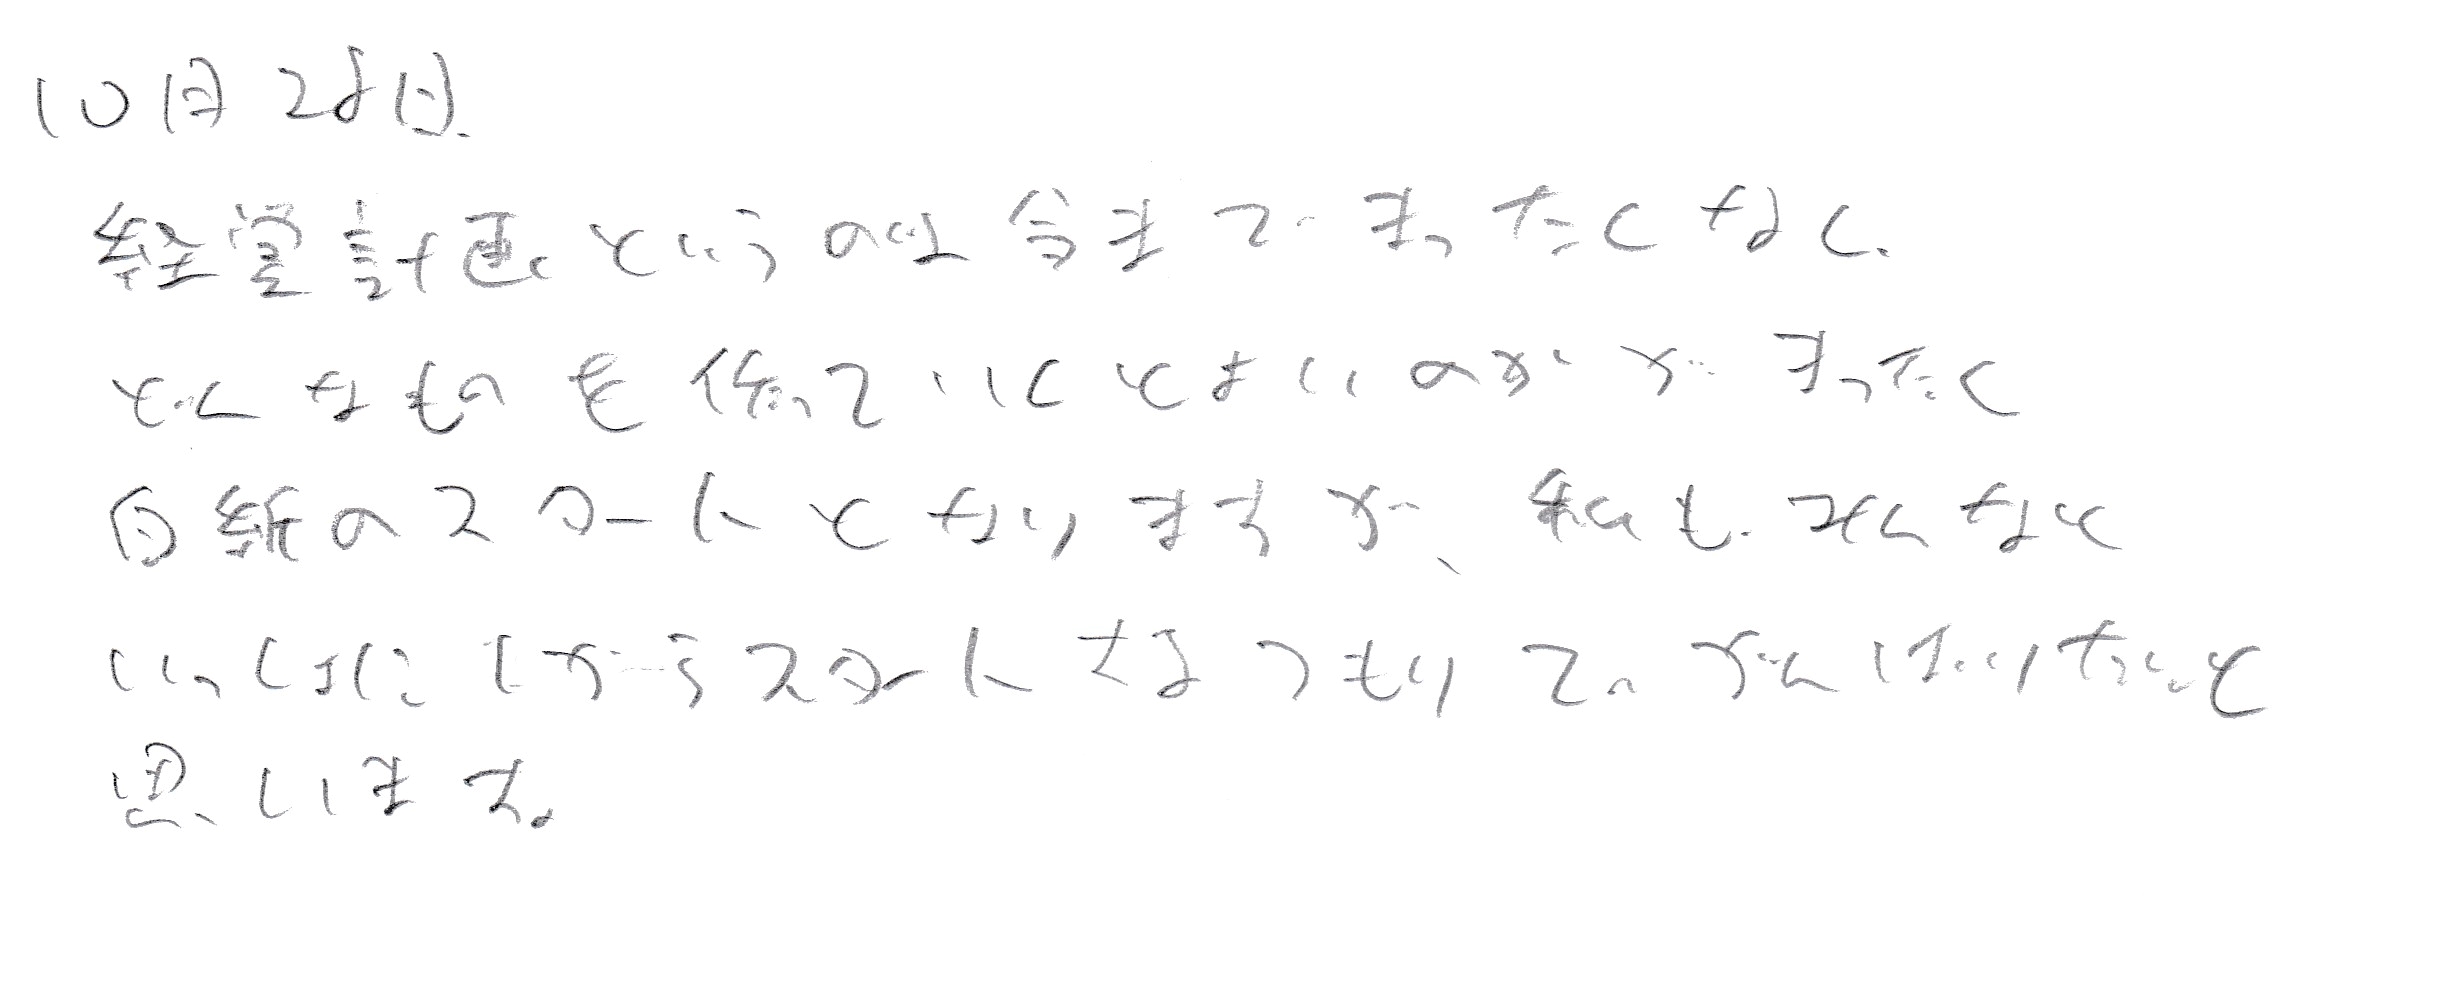 10月28日.
経営計画というのは今までまったくなく.
どんなものを作っていくとよいのかがまったく
白紙のスタートとなりますが、私もみんなと
いっしょに1からスタートなつもりでがんばりたいと
思います。